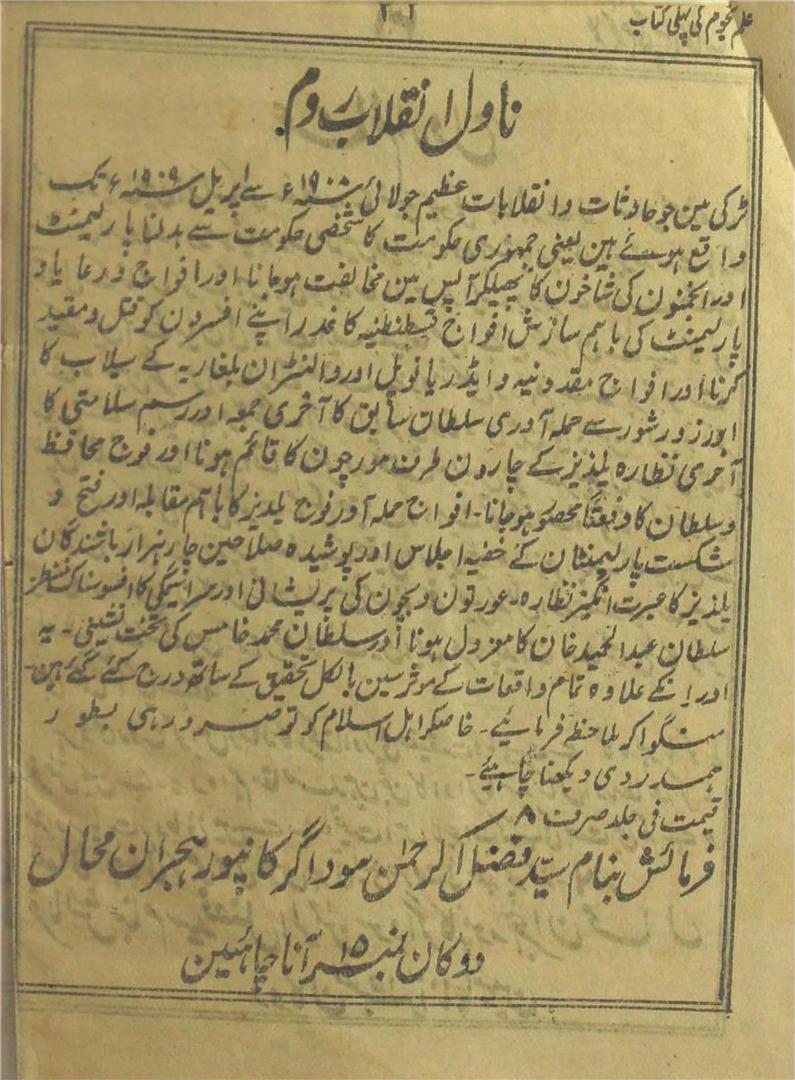 علم نجوم کی پہلی کتاب
ناول انقلاب روم
ٹرکی مین جو حادثات و انقلابات عظیم جولائی سنہ ۱۹۰۸ء سے اپریل سنہ ۱۹۰۹ء تک
واقع ہوئے ہین یعنی جمہوری حکومت کا شخصی حکومت سے بدلنا پارلیمنٹ
اور انجمنون کی شاخون کا پھیلکر آپس مین مخالفت ہوجانا۔ اور افواج و رعایا و
پارلیمنٹ کی باہم سازش افواج قسطنطنیہ کا غدر اپنے افسرون کو قتل و مقید
کرنا اور افواج مقدونیہ و ایڈریانوپل اور والنٹران بلغاریہ کے سیلاب کا
زور شور سے حملہ آوری سلطان سابق کا آخری جمعہ اور رسم سلامتی کا
آخری نظارہ یلدیز کے چارون طرف مورچون کا قائم ہونا اور فوج محافظ
و سلطان کا دفعتاً محصور ہوجانا۔ افواج حملہ آور فوج یلدیز کا باہم مقابلہ اور فتح و
شکست پارلیمنٹان کے خفیہ اجلاس اور پوشیدہ صلاحین چار ہزار باشندگان
یلدیز کا عبرت انگیز نظارہ۔ عورتون و بچون کی پریشانی اور سراسیمگی کا افسوسناک منظر
سلطان عبدالحمید خان کا معزول ہونا اور سلطان محمد خامس کی تخت نشینی۔ یہ
اور انکے علاوہ تمام واقعات کے موثر سین بالکل تحقیق کے ساتھ درج کئے گئے ہین۔
منگواکر ملاحظہ فرمائیے۔ خاصکر اہل اسلام کو تو ضرور ہی بطور
ہمدردی دیکھنا چاہیئے۔
قیمت فی جلد صرف ۸
فرمائش بنام سید فضل الرحمن سوداگر کانپور ہجران محال
دوکان نمبر ۱۵ آنا چاہئین